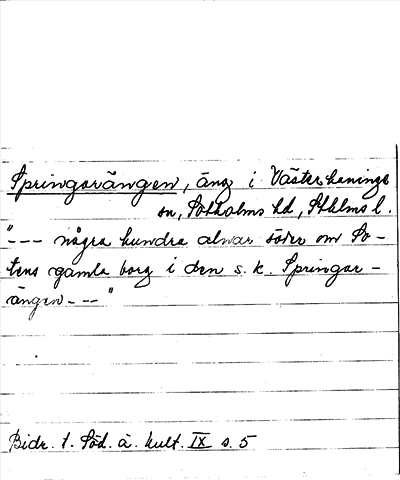 Springarängen, äng i Västerhaninge
sn, Sotholms hd, Sthlms l.
"--- några hundra alnar söder om So-
tens gamla borg i den s.k. Springar-
ängen---"
Bidr. t. Söd. ä. kult. IX s. 5